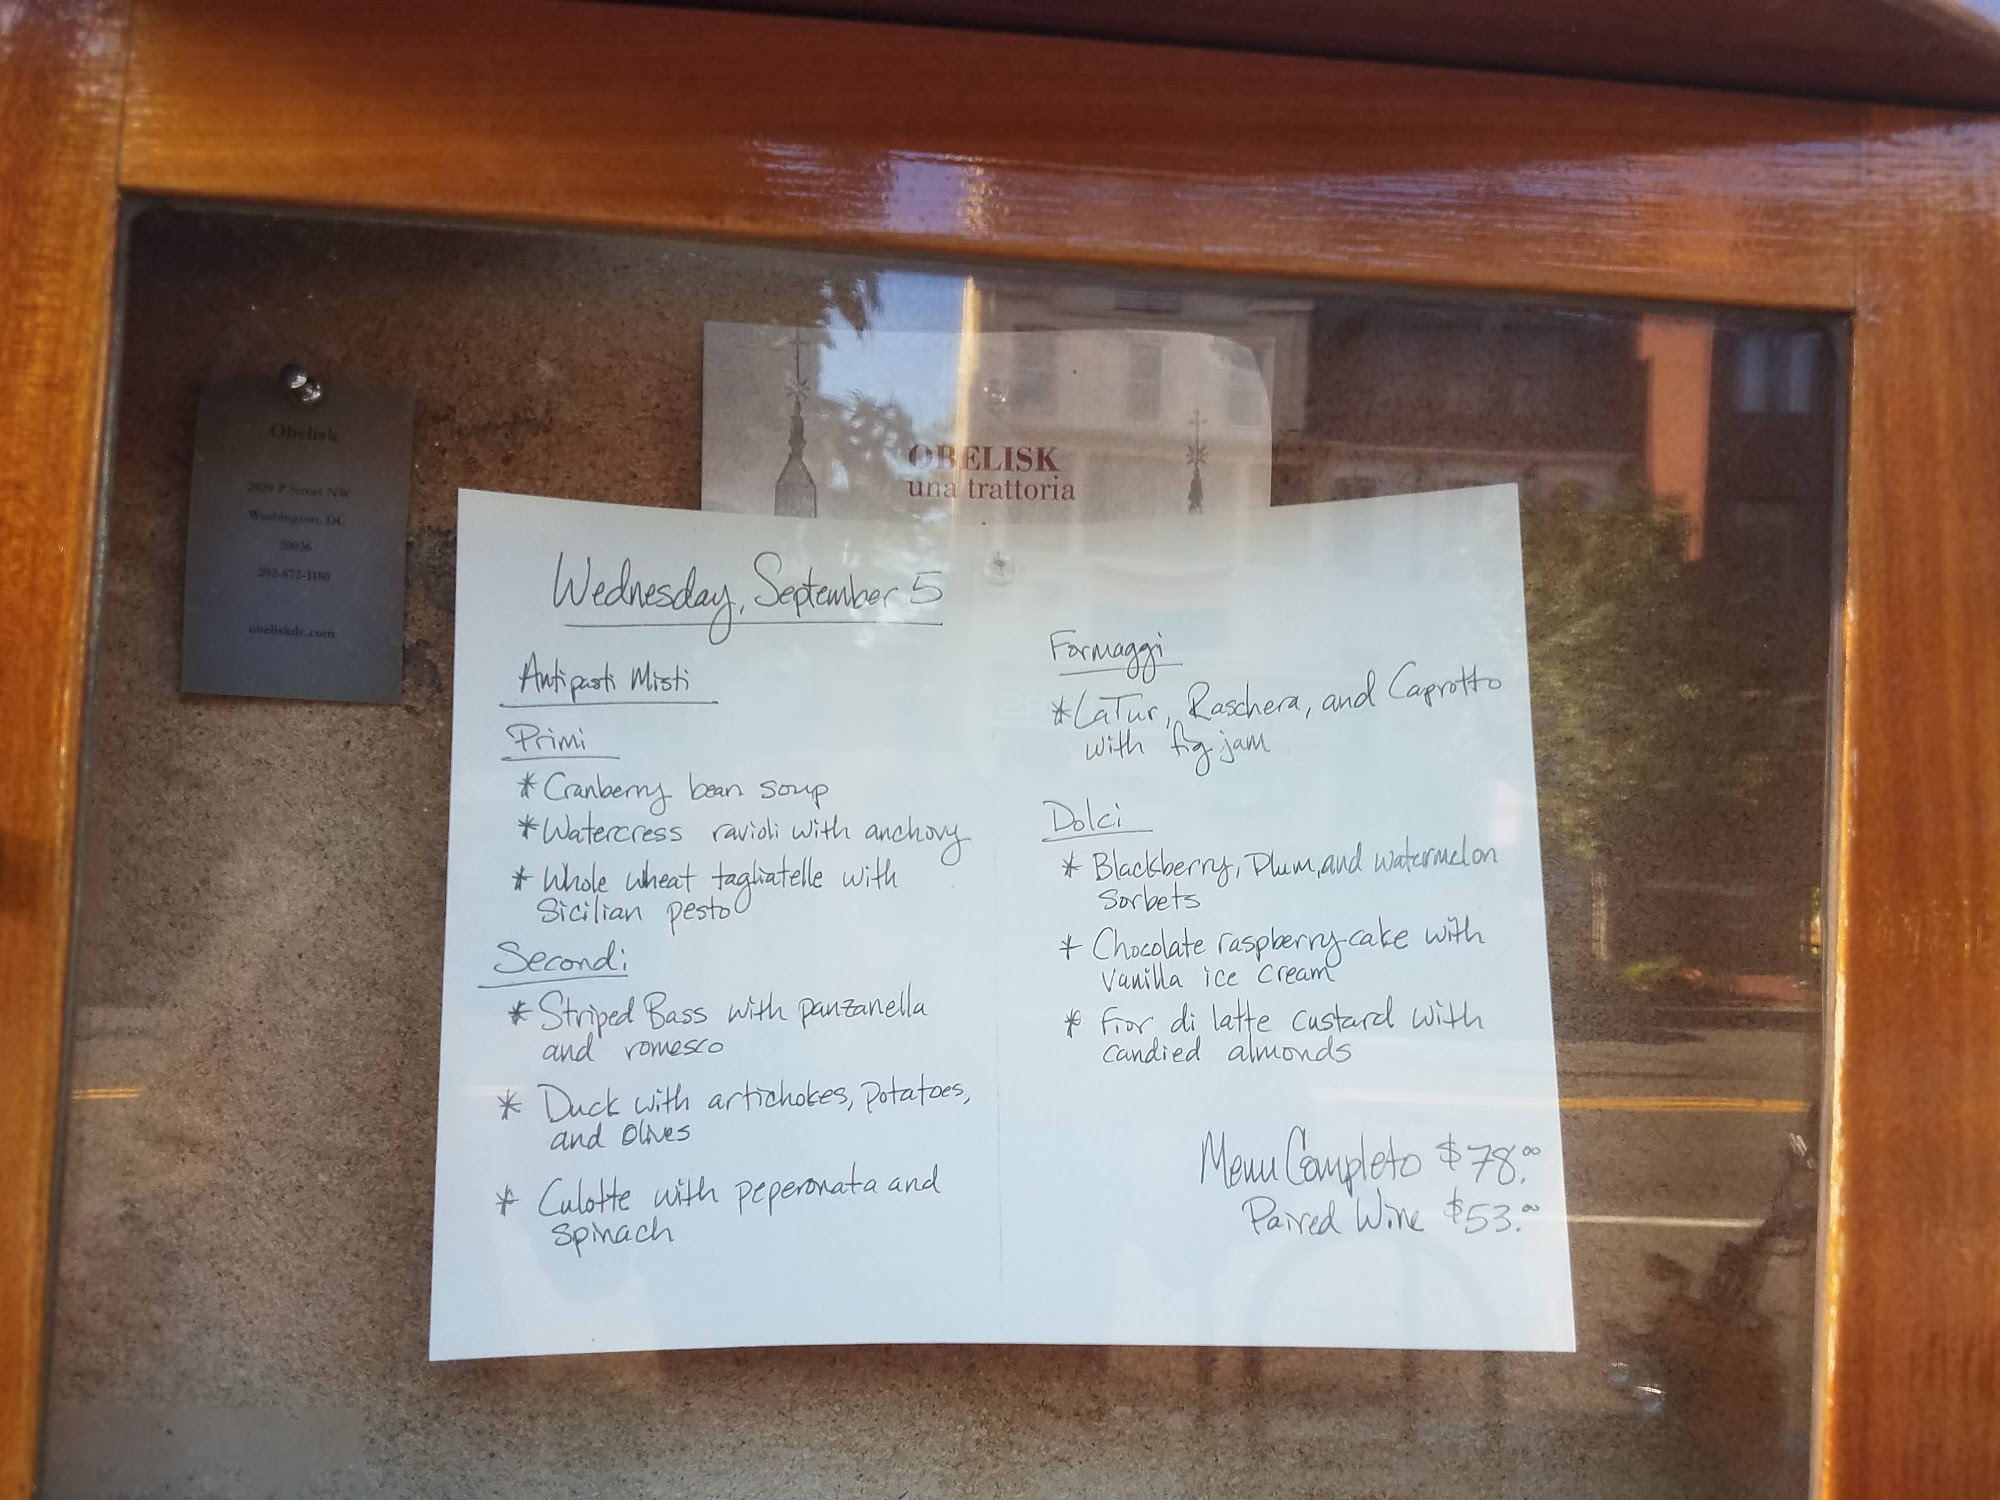 Obelisk
2029 P Street NW
Washington, DC
20036
202-872-1180
obeliskdc.com
OBELISK
una trattoria
Wednesday, September 5
Antipasti Misti
Primi
* Cranberry bean soup
* Watercress ravioli with anchovy
* Whole wheat tagliatelle with
Sicilian pesto
Secondi
* Striped Bass with panzanella
and romesco
* Duck with artichokes, potatoes,
and olives
* Culotte with peperonata and
spinach
Formaggi
* LaTur, Raschera, and Caprotto
with fig jam
Dolci
* Blackberry, Plum, and watermelon
sorbets
* Chocolate raspberry cake with
vanilla ice cream
* Fior di latte custard with
candied almonds
Menu Completo $78.00
Paired Wine $53.00